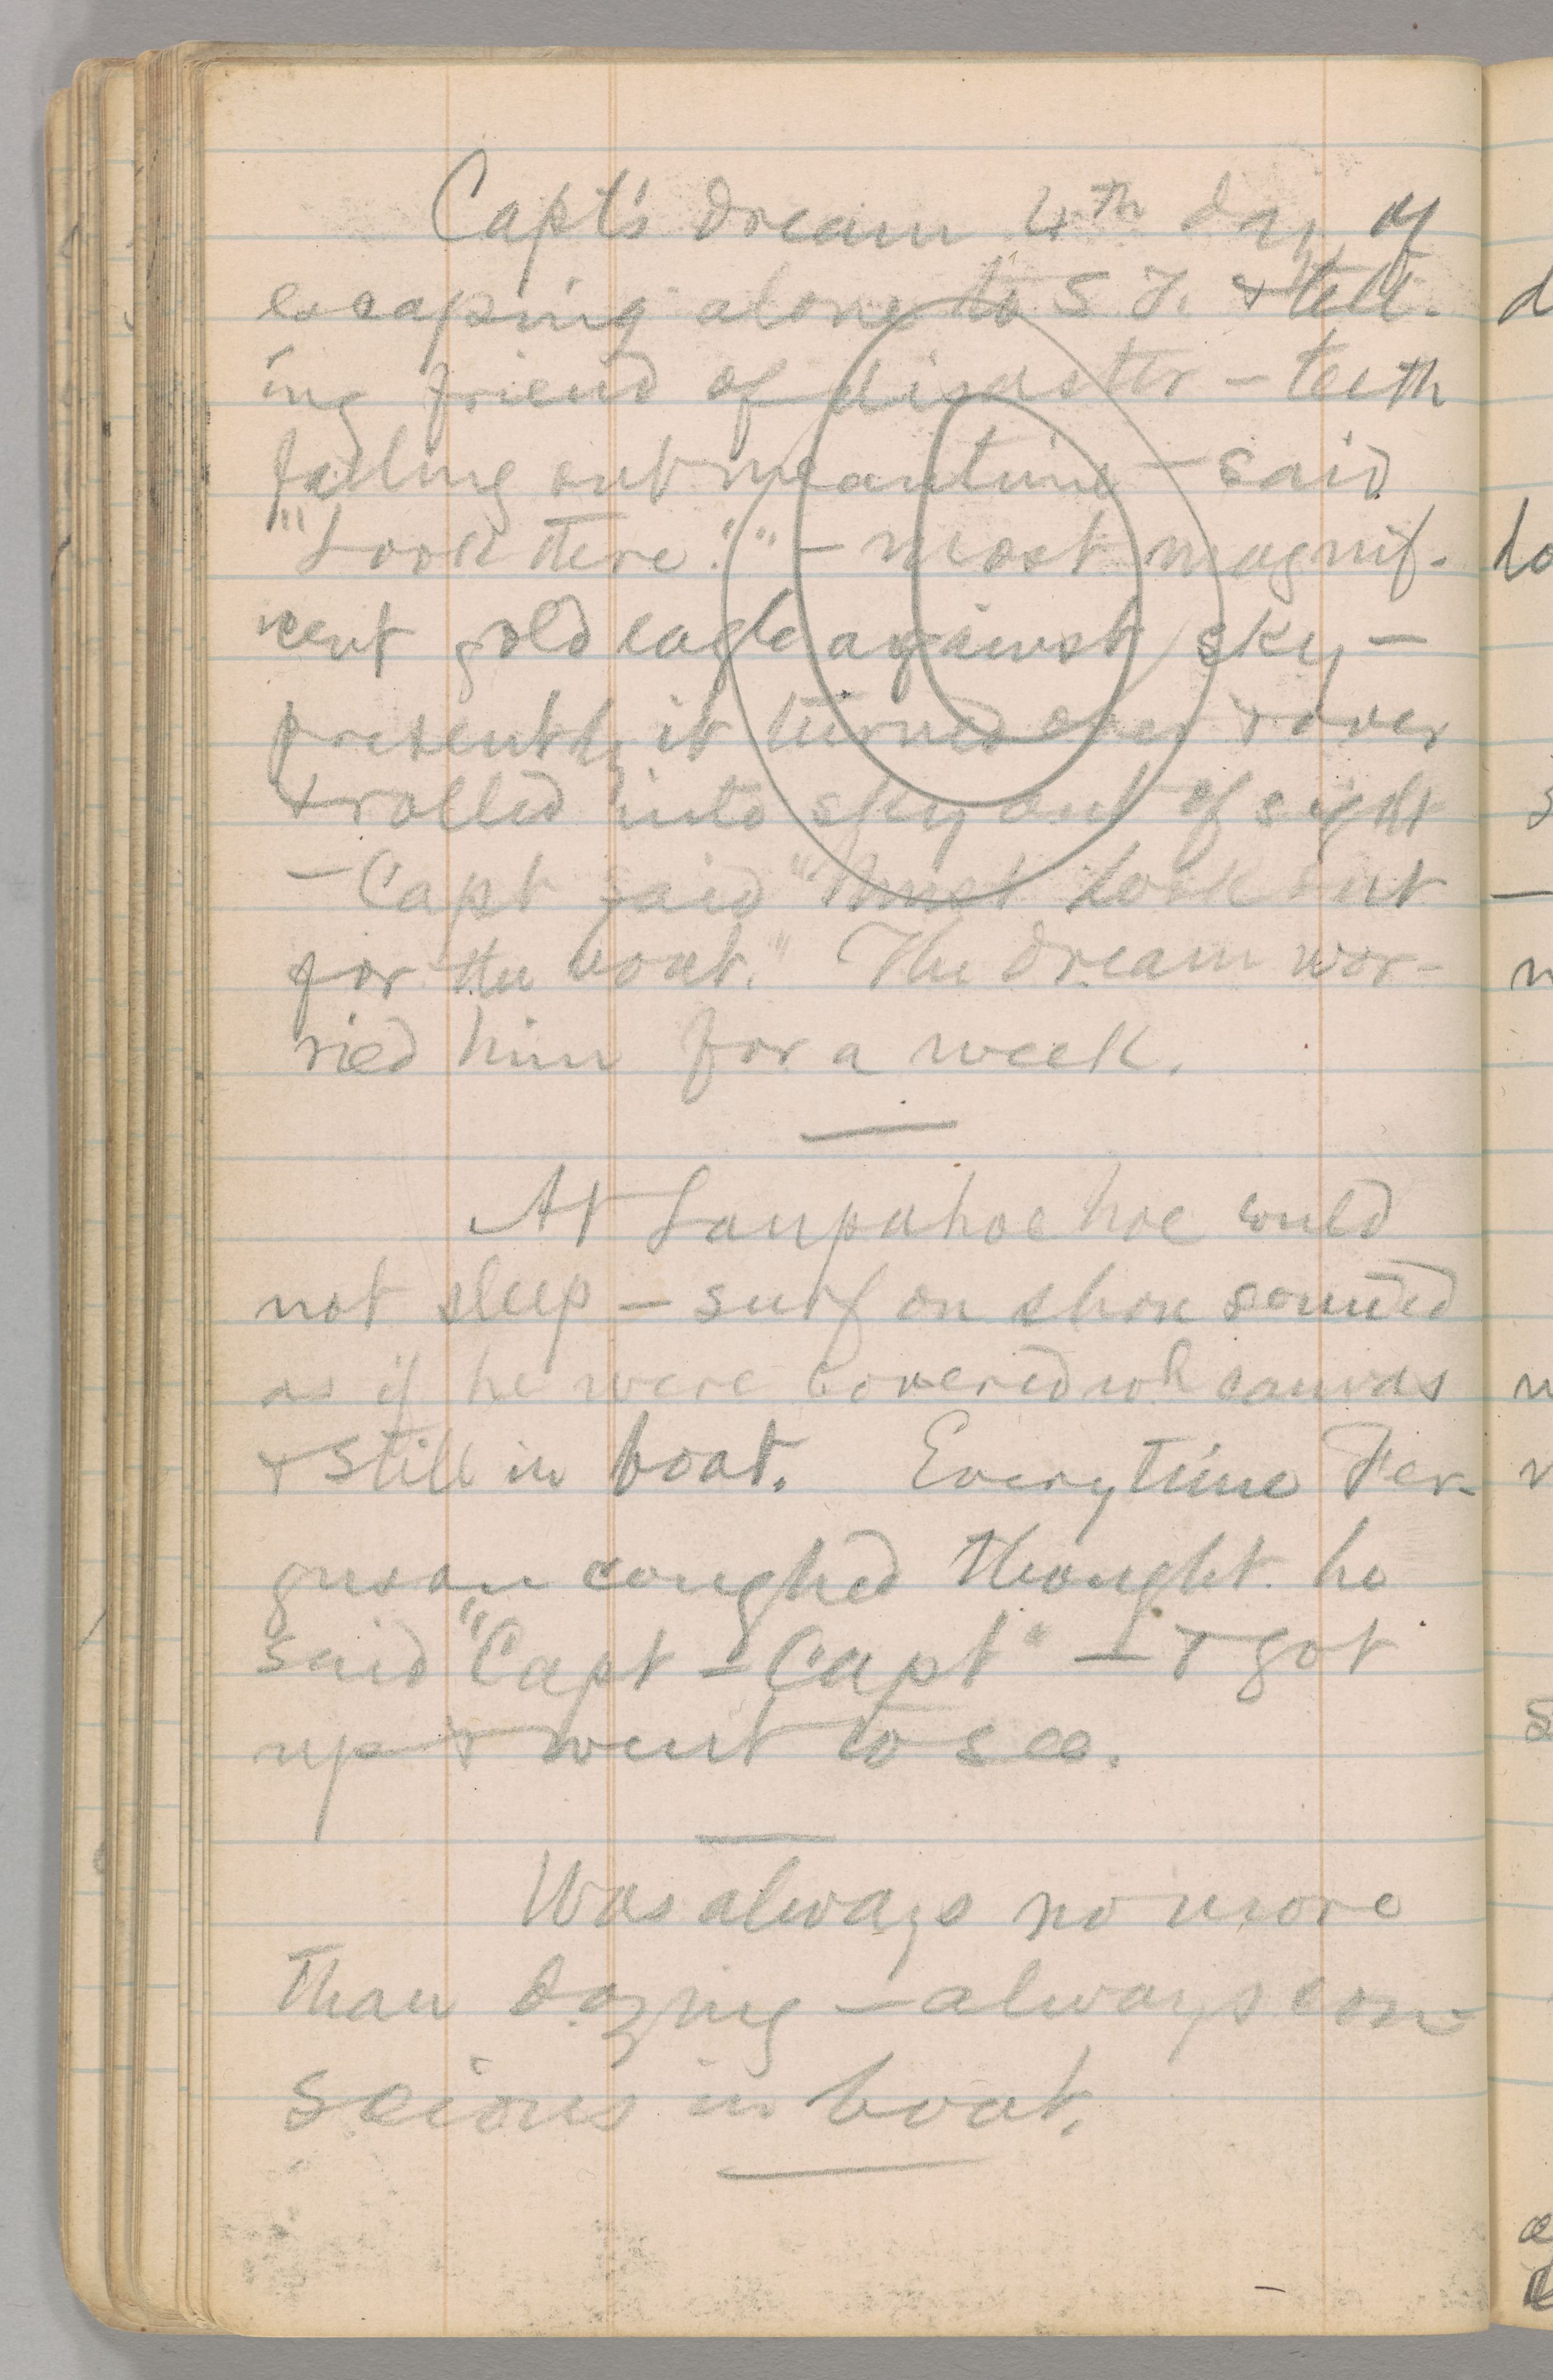 Capt's dream 4th day of
escaping alone to S F. & tell-
ing friend of disaster – teeth
falling out meantime – said
"Look there!" – most magnif-
icent gold eagle against sky –
presently it turned over & over
& rolled into sky out of sight
– Capt said "Must look out
for the boat." The dream wor-
ried him for a week.
At Laupahoehoe could
not sleep – surf on shore sounded
as if he were covered wh canvas
& still in boat. Every time Fer-
guson coughed thought he
said "Capt – Capt" – & got
up & went to see.
Was always no more
than dozing – always con-
scious in boat.